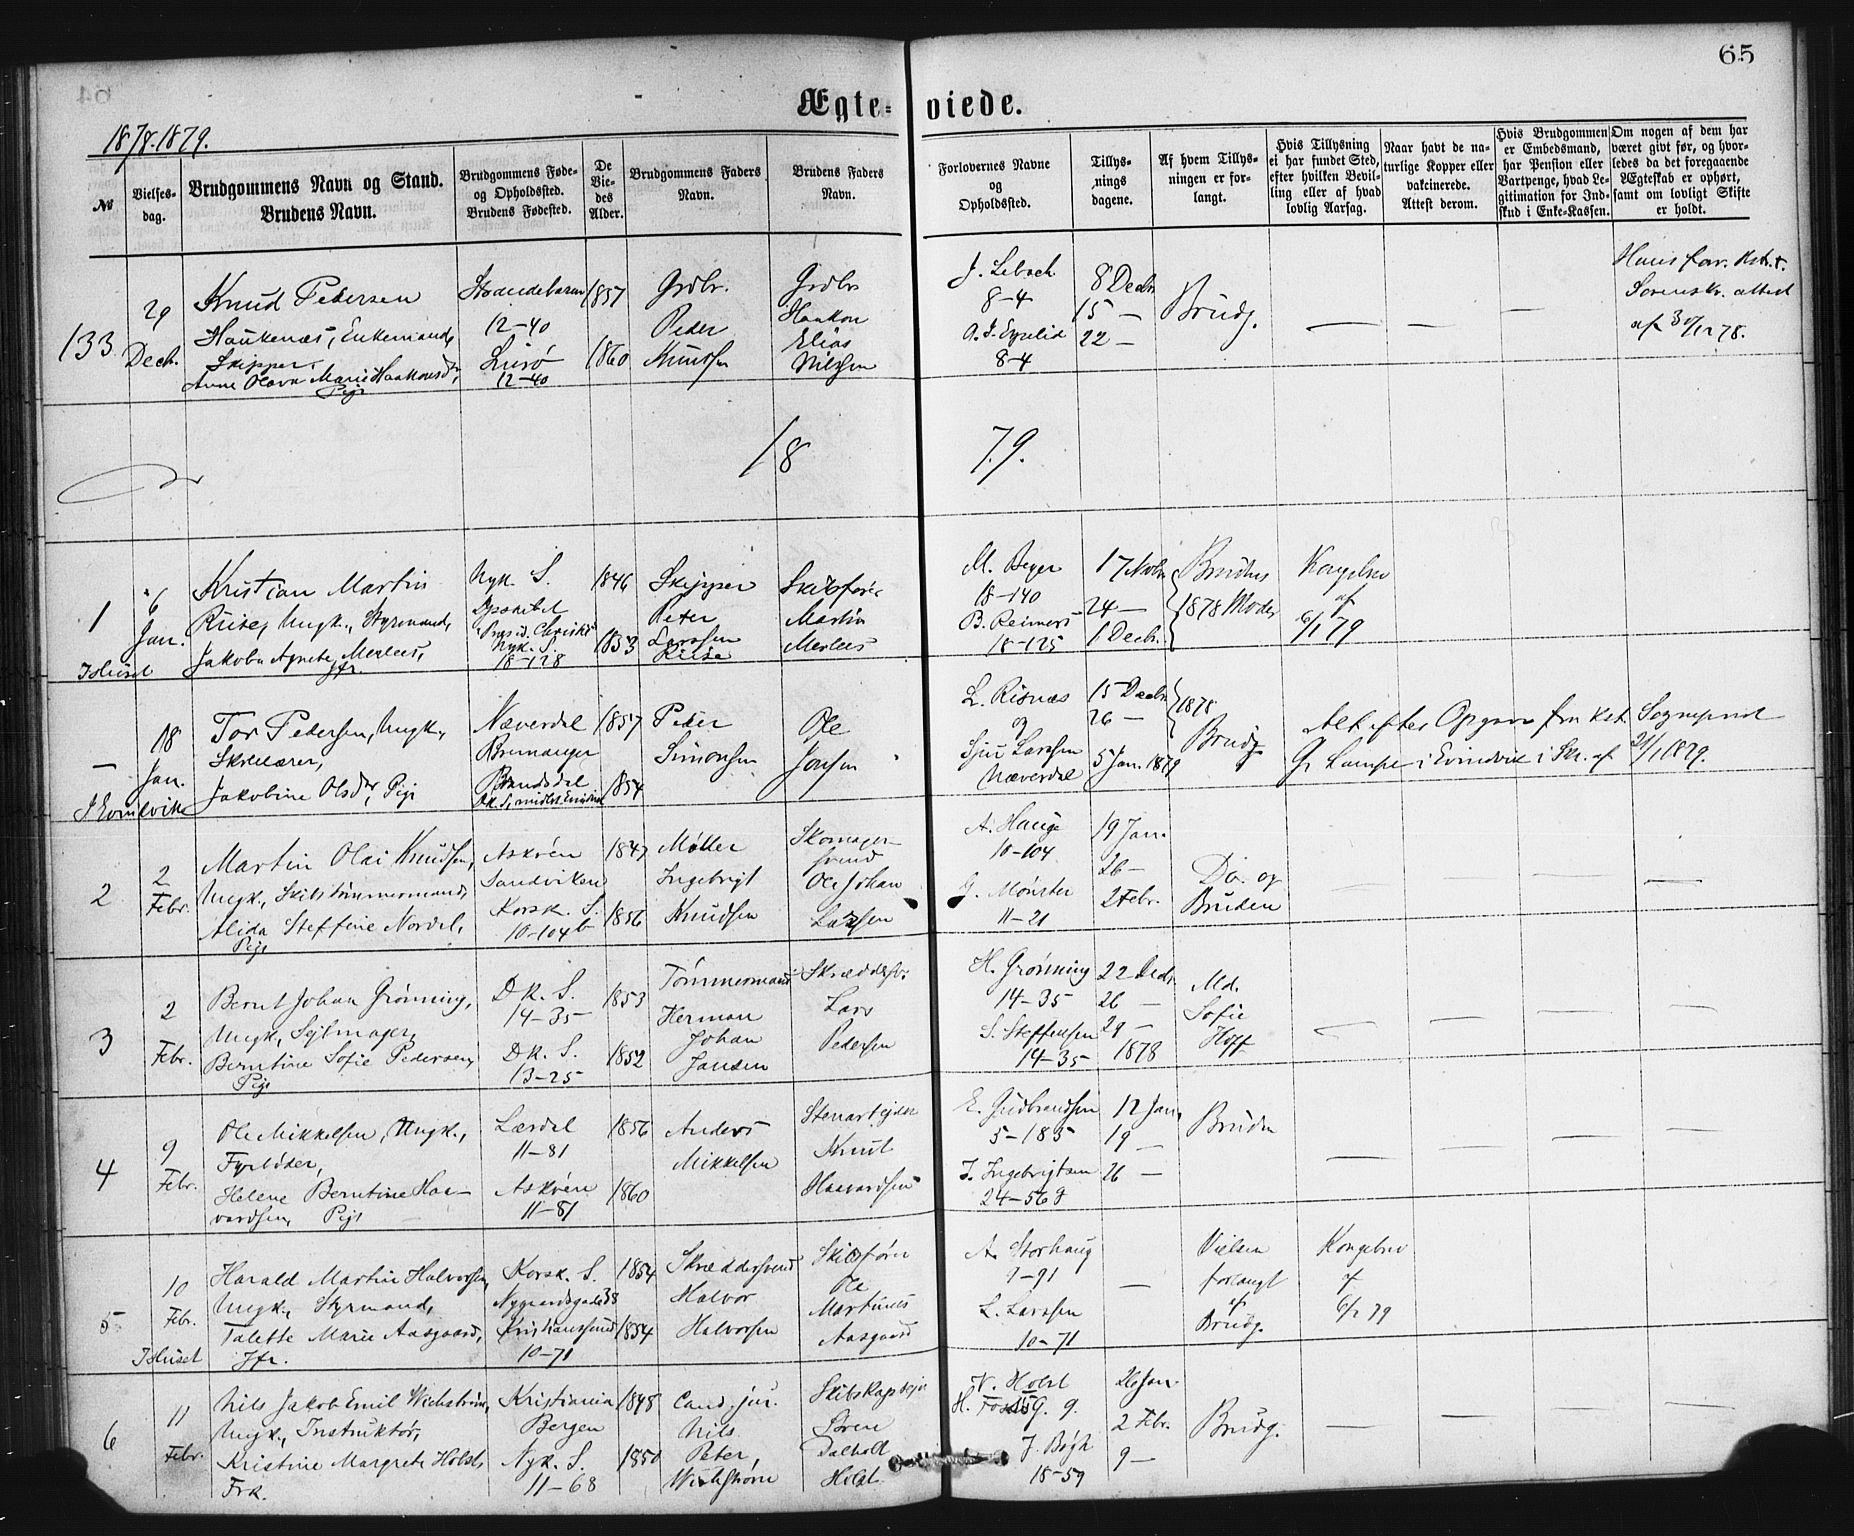 65
Ægte-viede.
1878.1879.
№
Vielses-
dag.
Brudgommens Navn og Stand.
Brudens Navn.
Brudgommens Føde-
og Opholdssted.
Brudens Fødested.
De
Vie-
des
Alder.
Brudgommens Faders
Navn.
Brudens Faders
Navn.
Forlovernes Navne
og
Opholdssted.
Tillys-
nings
dagene.
Af hvem Tillys-
ningen er for-
langt.
Hvis Tillysning
ei har fundet Sted,
efter hvilken Bevil-
ling eller af hvad
lovlig Aarsag.
Naar havt de na-
turlige Kopper eller
vakcinerede.
Attest derom.
Hvis Brudgommen
er Embedsmand,
har Pension eller
Vartpenge, hvad Le-
gitimation for Ind-
skud i Enke-Kassen.
Om nogen af dem har
været givt før, og hvor-
ledes da det foregaaende
Ægteskab er ophørt,
samt om lovligt Skifte
er holdt.
133
29
Decb.
Knud Pedersen
Haukenæs, Enkemand,
Skipper,
Anne Olava Marie Haakonsd,
Pige
Strandebarm
12-40
Lurø
12-40
1857
1860
Grdbr.
Peder
Knudsen
Grdbr
Haakon
Elias
Nilssen
J. Lebach
8-4
8-4
8 Decb
15 —
22 —
Brudg.
—
—
—
Sorenskr. attest
1879.
1
6
Jan.
I Huset
Kristian Martin
Kruse, Ungk., Styrmand,
Jakobu Agnete Merlees,
Jfr.
Nyk. S.
Dpskibet
"Præsid. Christie"
Nyk. S.
18-128
1846
1853
Skipper
Peter
Larssen
Kruse
Skibsfører
Martin
Merlees
M. Beyer
18-140
B. Reimers
18-125
17 Novb
24 —
1 Decb.
1878
Brudens
Moder
Kongebrev
af
6/1 79
—
18
Jan.
I Evindvik
Tor Pedersen, Ungk,
Skrædder,
Jakobine Olsdr, Pige
Næverdal
Bremanger
Brandsdal
1857
1854
Peder
Simonsen
Ole
Jonsen
L. Risnæs
og
Sjur Larssen
Næverdal
15 Decb
26 —
5 Jan. 1879
1878
Brudg.
Alt efter Opgave fra kst. Sogneprest
G. Lampe i Evindvik i Skr. af 21/1 1879.
2
2
Febr.
Martin Olai Knudsen,
Ungk., Skibstømmermand,
Alida Steffine Nordal,
Pige
Askven
Sandviken
Korsk. S.
10-104b
1847
1856
Møller
Ingebrigt
Knudsen
Skomager-
svend
Ole Johan
Larsen
A. Hauge
10-104
G. Mønster
11-21
19 Jan.
26 —
2 Febr.
Do. og
Bruden
—
—
—
—
3
2
Febr.
Bernt Johan Grønning,
Ungk., Sejlmager,
Berntine Sofie Pedersen,
Pige
D K. S.
14-35
D K. S.
13-25
1853
1852
Tømmermand
Herman
Johan
Jansen
Skræddersv.
Lars
Pedersen
H. Grønning
14-35
S. Steffensen
14-35
22 Decb
26 —
29 —
1878
Md.
Sofie
Hoff
—
—
—
—
4
9
Febr.
Ole Mikkelsen, Ungk.,
Fyrbøder,
Helene Berntine Haa-
vardsen, Pige
Lærdal
11-81
Askven
11-81
1856
1860
Anders
Mikkelsen
Stenarbejder
Knut
Haavardsen
E. Gudbrandsen
5-185
I. Ingebrigtsen
12 Jan.
19 —
26 —
Bruden
—
—
—
—
5
10
Febr.
I Huset
Harald Martin Halvorsen,
Ungk., Styrmand,
Talette Marie Aasgaard,
Jfr.
Korsk. S.
Nygaardsgade 38
Kristianssund
10-71
1854
1854
Skræddersvend
Halvor
Halvorsen
Skibsfører
Ole
Martinus
Aasgaard
A. Storhaug
L. Larssen
10-71
—
Vielsen
forlangt
af
Brudg.
Kongebrev
af
6/2 79
6
11
Febr.
Nils Jakob Emil Wichstrøm,
Ungk., Instruktør,
Kristine Margrete Holst,
Frk.
Kristiania
Bergen
Nyk. S.
11-68
1848
1850
Cand. jur.
Nils
Peter
Wichstrøm
Søren
Dalhoff
Holst
W. Holst
J. Bøgh
18-59
26 Jan.
2 Febr.
9 —
Brudg.
—
—
—
—